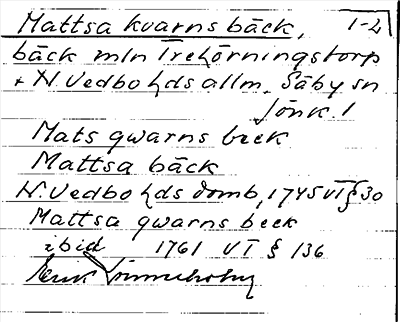 Mattsa kvarns bäck, 1-2
bäck mln Trehörningstorp
+ N. Vedbo hds allm. Säby sn
Jönk. l
Mats qwarns beck
Mattsa bäck
N. Vedbo hds domb, 1745 VI § 30
Mattsa qwarns beck
ibid 1761 VI § 136
Erik